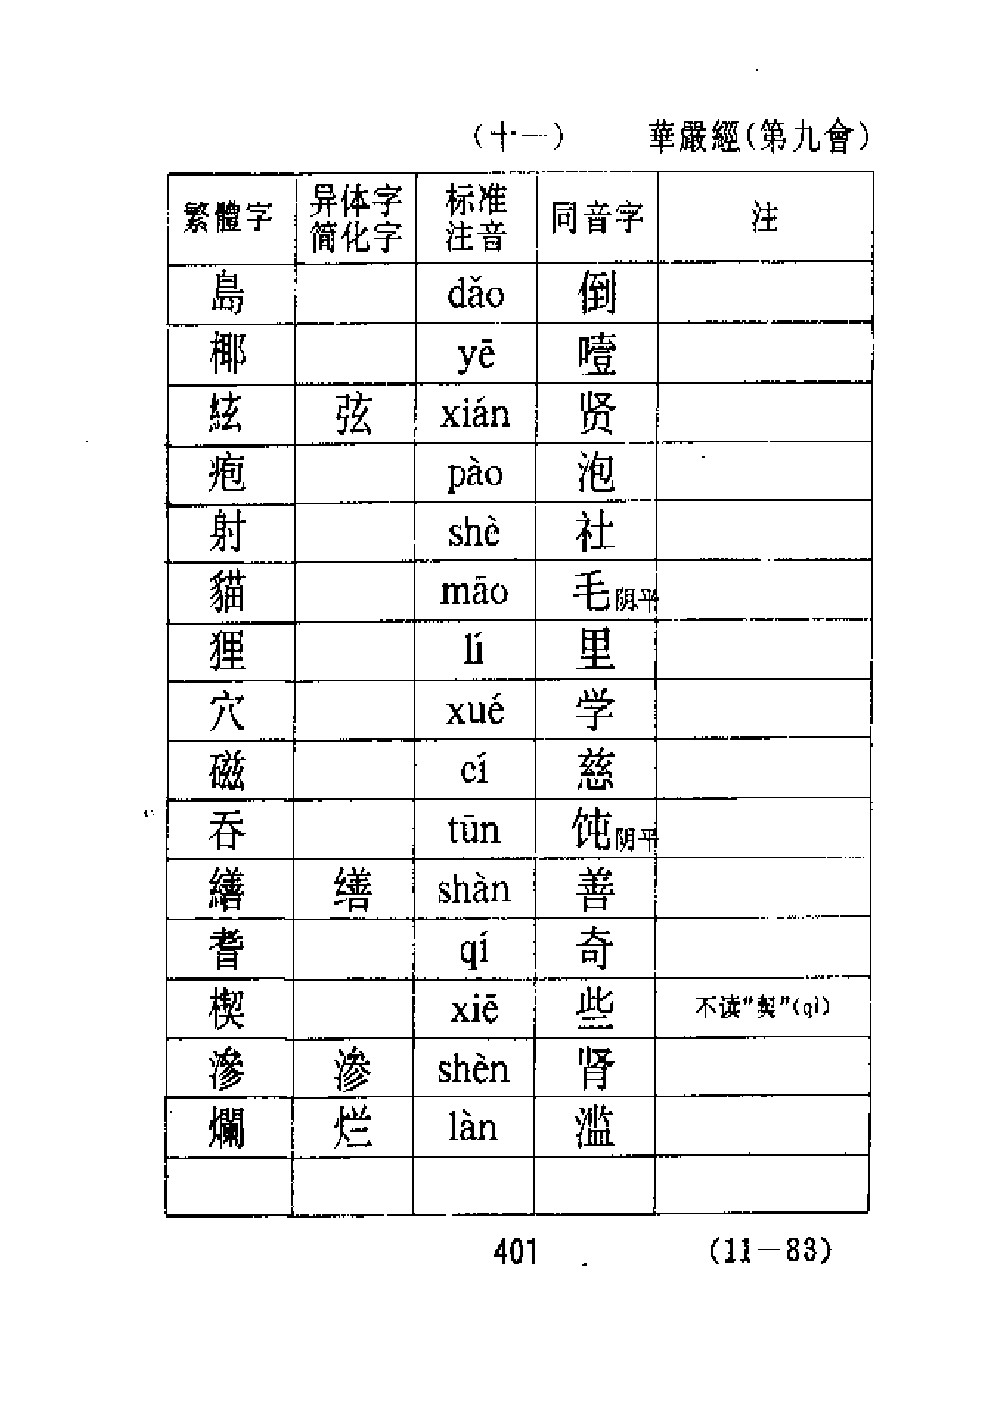 （十一） 華嚴經（第九會）
繁體字 异体字 标准 同音字 注
简化字 注音
島 dǎo 倒
椰 yē 噎
絃 弦 xián 贤
疱 pào 泡
射 shè 社
貓 māo 毛阴平
狸 lí 里
穴 xué 学
磁 cí 慈
吞 tūn 饨阴平
繕 缮 shàn 善
耆 qí 奇
楔 xiē 些 不读“契”(qì)
滲 渗 shèn 肾
爛 烂 làn 滥
401 （11－83）